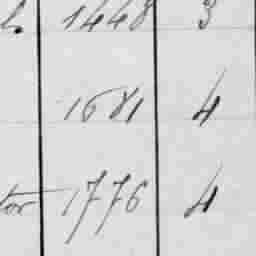 1448 3
1681 4
tor 1776 4